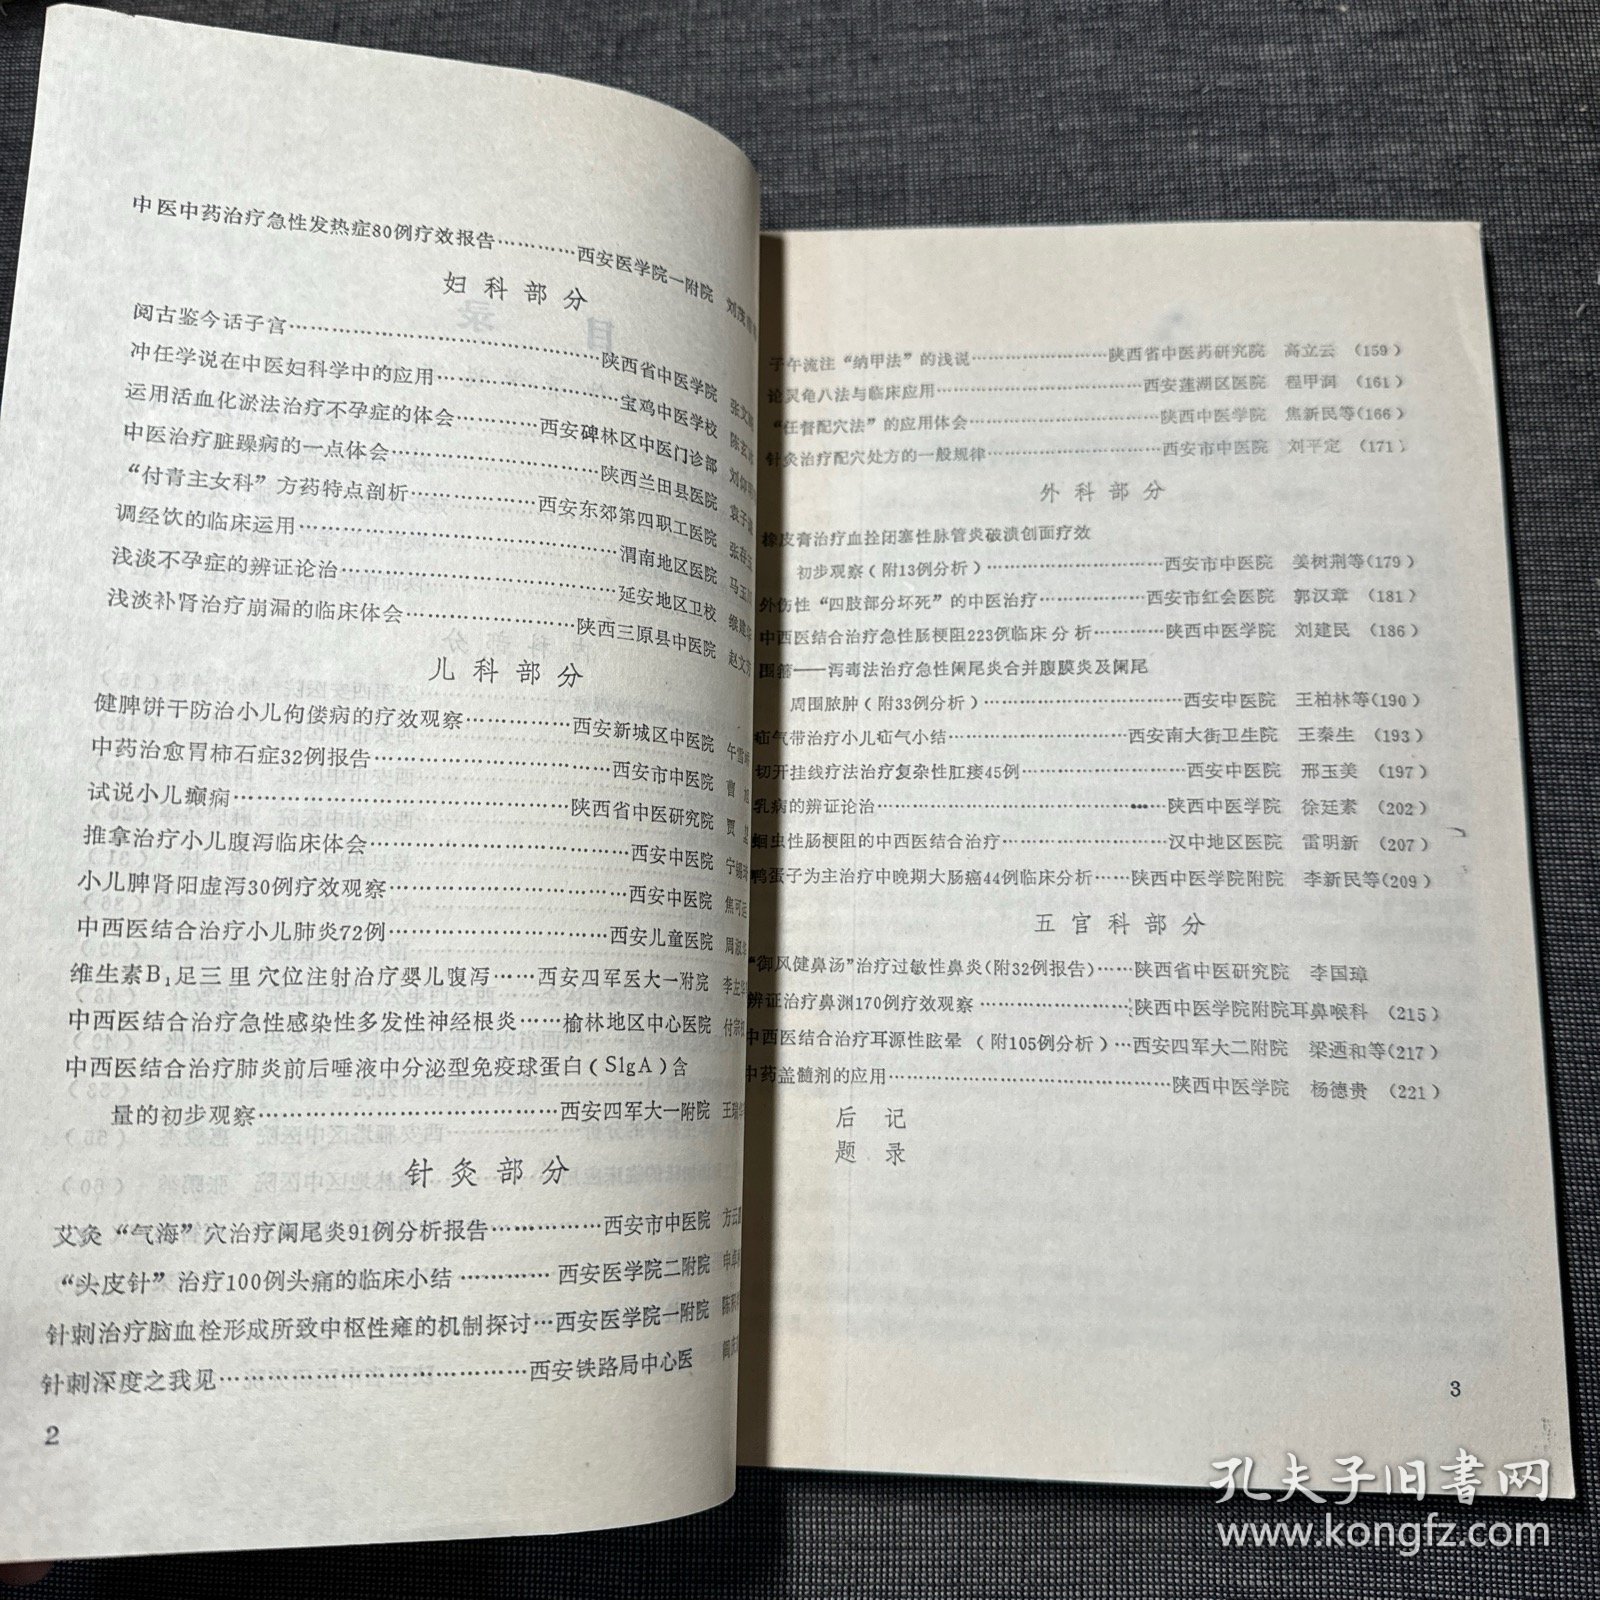 中医中药治疗急性发热症80例疗效报告…………西安医学院一附院 刘茂
妇科部分
阅古鉴今话子宫……………………………陕西省中医学院 张文
冲任学说在中医妇科学中的应用…………………宝鸡中医学校 陈玄
运用活血化淤法治疗不孕症的体会………西安碑林区中医门诊部 刘仰
中医治疗脏躁病的一点体会……………………陕西兰田县医院 袁子
“付青主女科”方药特点剖析…………西安东郊第四职工医院 张春
调经饮的临床运用……………………………渭南地区医院 马玉
浅淡不孕症的辨证论治…………………………延安地区卫校 缑建
浅淡补肾治疗崩漏的临床体会………………陕西三原县中医院 赵文
儿科部分
健脾饼干防治小儿佝偻病的疗效观察……………西安新城区中医院 午雪
中药治愈胃柿石症32例报告……………………西安市中医院 曹
试说小儿癫痫………………………………陕西省中医研究院 贾
推拿治疗小儿腹泻临床体会………………………西安中医院 宁
小儿脾肾阳虚泻30例疗效观察……………………西安中医院 焦可
中西医结合治疗小儿肺炎72例……………………西安儿童医院 周淑
维生素B₁足三里穴位注射治疗婴儿腹泻……西安四军医大一附院 李左
中西医结合治疗急性感染性多发性神经根炎……榆林地区中心医院 付宗
中西医结合治疗肺炎前后唾液中分泌型免疫球蛋白(SlgA)含
量的初步观察………………………………西安四军大一附院 王瑞
针灸部分
艾灸“气海”穴治疗阑尾炎91例分析报告……………西安市中医院 方云
“头皮针”治疗100例头痛的临床小结…………西安医学院二附院 申卓
针刺治疗脑血栓形成所致中枢性瘫的机制探讨…西安医学院一附院 陈
针刺深度之我见………………………………西安铁路局中心医 阎庆
2
子午流注“纳甲法”的浅说………………陕西省中医药研究院 高立云 (159)
论灵龟八法与临床应用………………………西安莲湖区医院 程甲润 (161)
“任督配穴法”的应用体会……………………陕西中医学院 焦新民等(166)
针灸治疗配穴处方的一般规律…………………西安市中医院 刘平定 (171)
外科部分
橡皮膏治疗血拴闭塞性脉管炎破溃创面疗效
初步观察(附13例分析)……………………西安市中医院 姜树荆等(179)
外伤性“四肢部分坏死”的中医治疗……………西安市红会医院 郭汉章 (181)
中西医结合治疗急性肠梗阻223例临床分析…………陕西中医学院 刘建民 (186)
围箍——泻毒法治疗急性阑尾炎合并腹膜炎及阑尾
周围脓肿(附33例分析)……………………西安中医院 王柏林等(190)
疝气带治疗小儿疝气小结……………………西安南大街卫生院 王秦生 (193)
切开挂线疗法治疗复杂性肛瘘45例………………西安中医院 邢玉美 (197)
乳病的辨证论治………………………………陕西中医学院 徐廷素 (202)
蛔虫性肠梗阻的中西医结合治疗…………………汉中地区医院 雷明新 (207)
鸭蛋子为主治疗中晚期大肠癌44例临床分析……陕西中医学院附院 李新民等(209)
五官科部分
“御风健鼻汤”治疗过敏性鼻炎(附32例报告)……陕西省中医研究院 李国璋
辨证治疗鼻渊170例疗效观察………………陕西中医学院附院耳鼻喉科 (215)
中西医结合治疗耳源性眩晕 (附105例分析)…西安四军大二附院 梁迺和等(217)
中药盖髓剂的应用………………………………陕西中医学院 杨德贵 (221)
后记
题录
3
孔夫子旧书网
www.kongfz.com